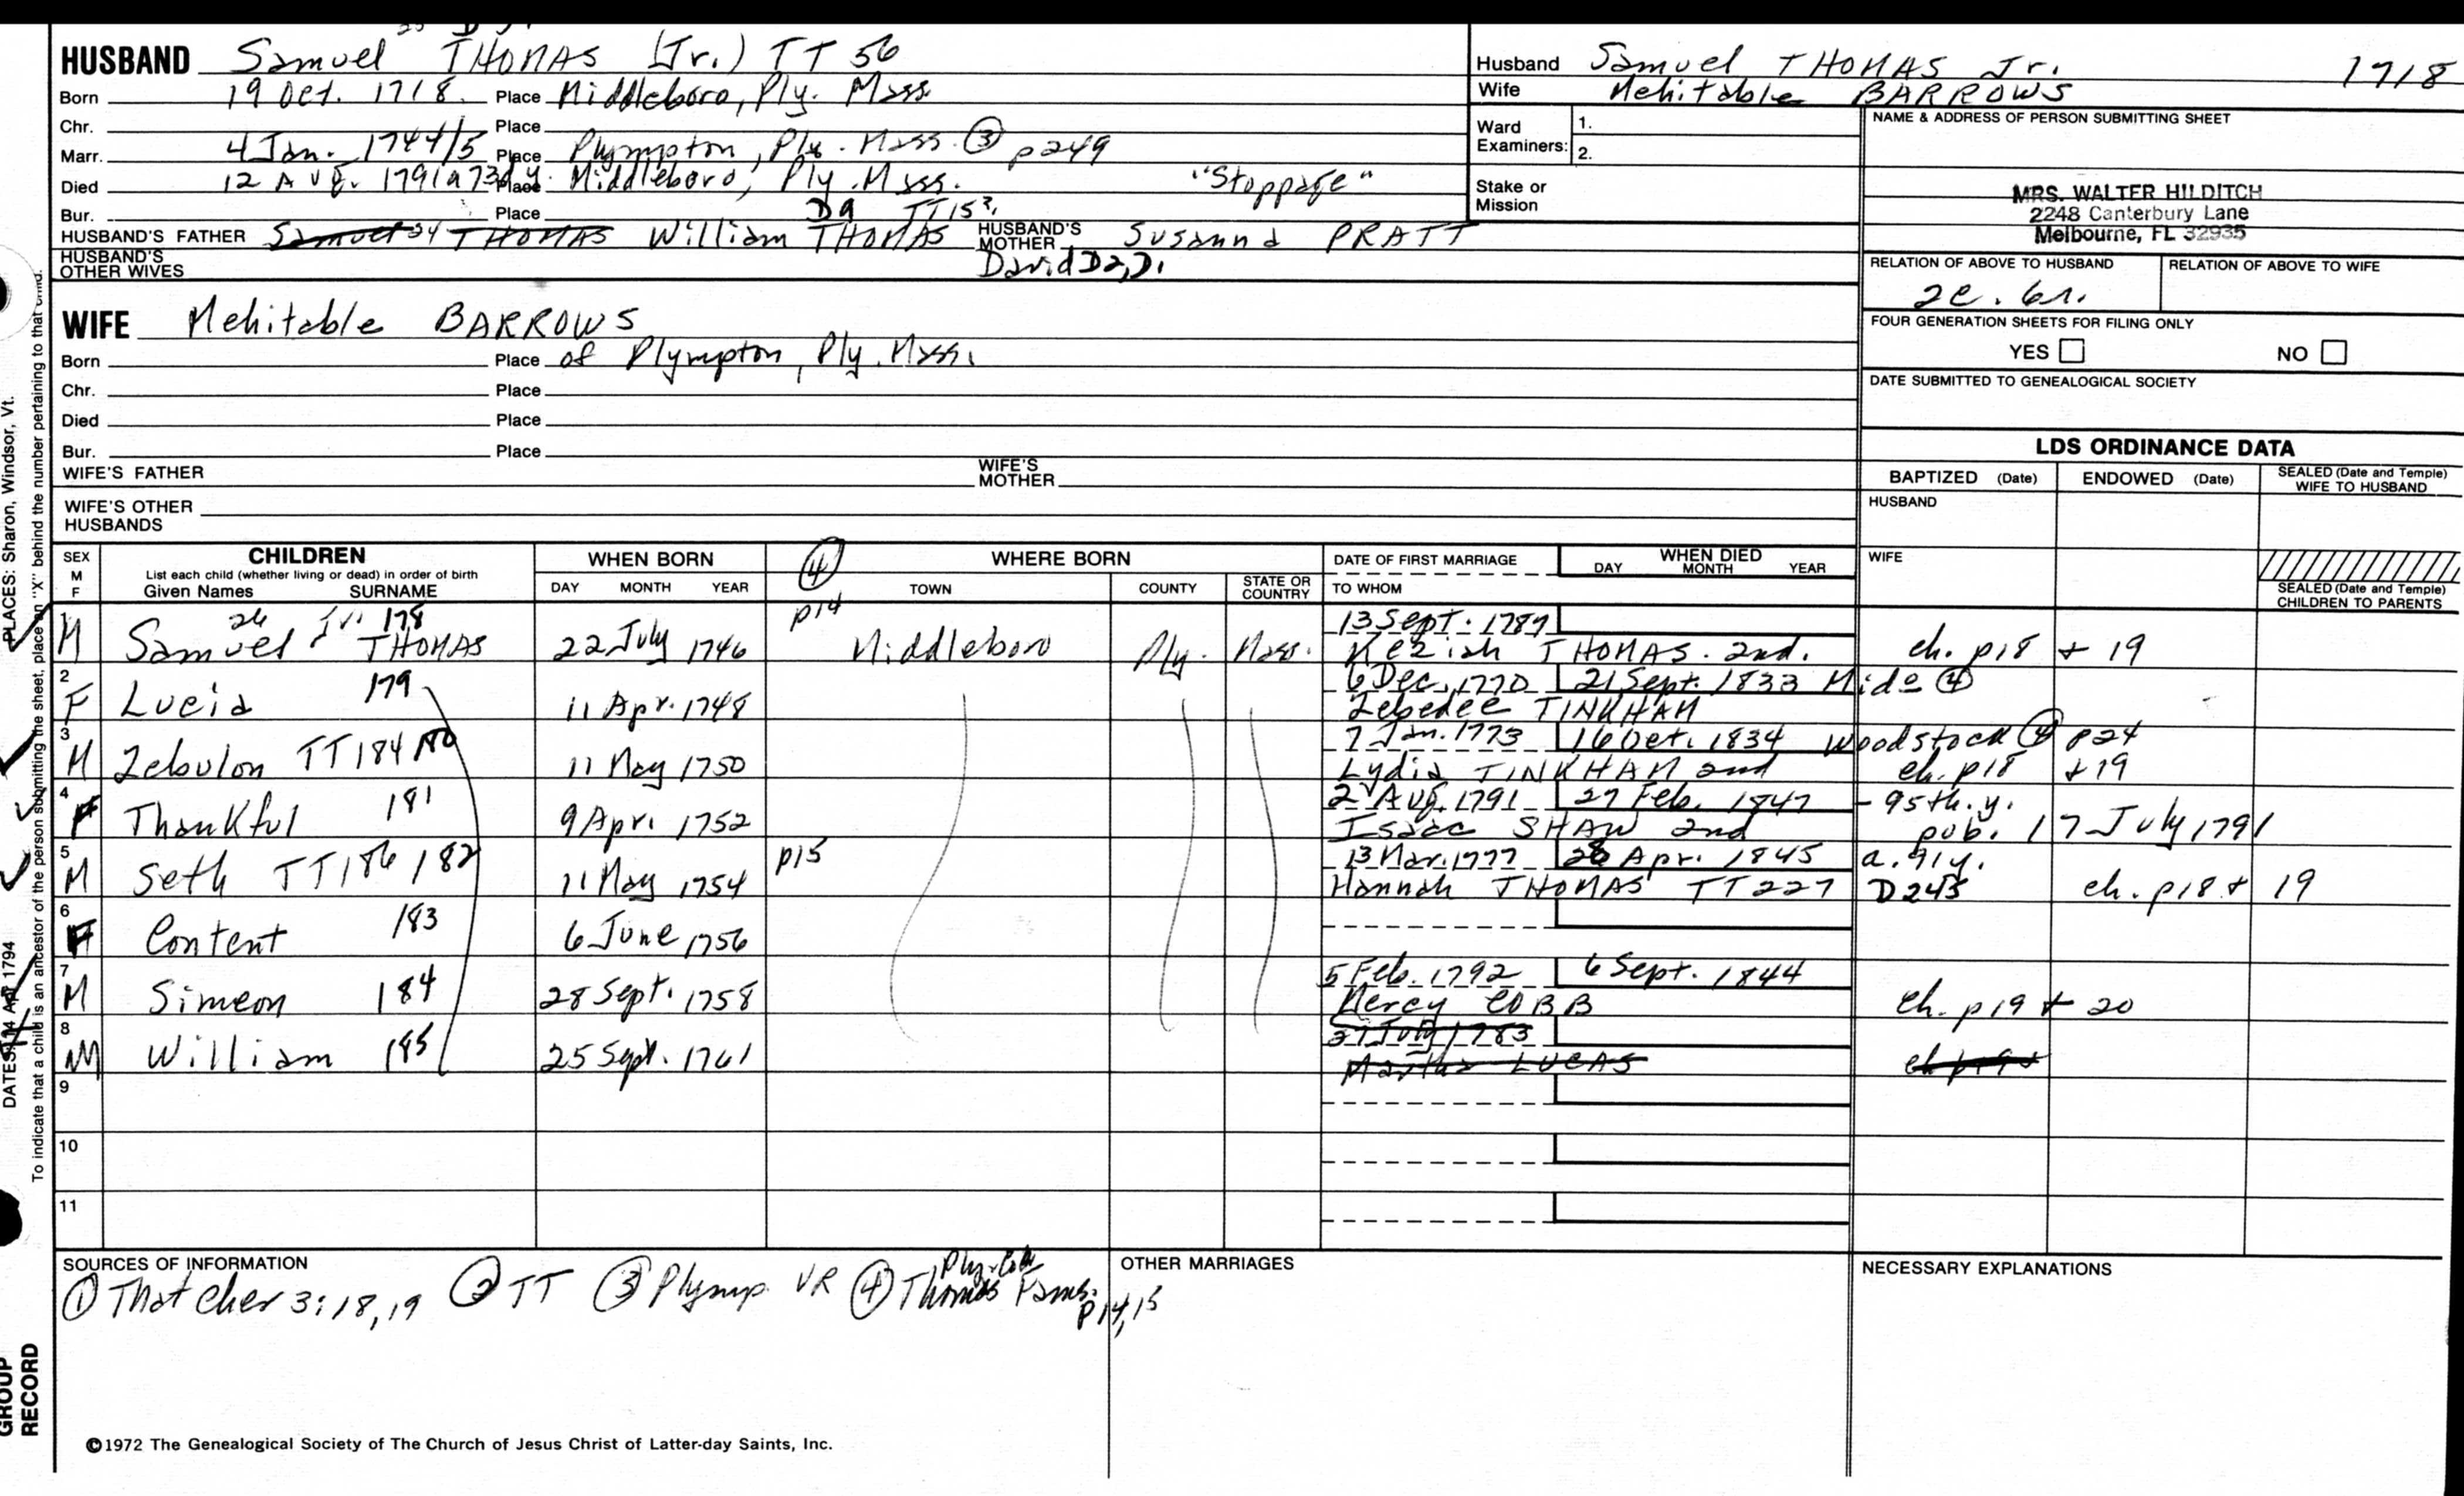 HUSBAND Samuel THOMAS (Jr.) TT 56
Born 19 Oct. 1718. Place Middleboro, Ply. Mass.
Chr. Place
Marr. 4 Jan. 1744/5 Place Plympton, Ply. Mass. ③ p249
Died 12 Aug. 1791 a 73d y. Place Middleboro, Ply. Mass. "Stoppage"
Bur. Place D9 TT15
HUSBAND'S FATHER Samuel 24 THOMAS William THOMAS HUSBAND'S MOTHER Susanna PRATT
HUSBAND'S OTHER WIVES David D2, D1
Husband Samuel THOMAS Jr. 1718
Wife Mehitable BARROWS
Ward Examiners: 1.
2.
Stake or Mission
NAME & ADDRESS OF PERSON SUBMITTING SHEET
MRS. WALTER HILDITCH
2248 Canterbury Lane
Melbourne, FL 32935
RELATION OF ABOVE TO HUSBAND RELATION OF ABOVE TO WIFE
FOUR GENERATION SHEETS FOR FILING ONLY
YES NO
DATE SUBMITTED TO GENEALOGICAL SOCIETY
WIFE Mehitable BARROWS
Born Place of Plympton, Ply. Mass.
Chr. Place
Died Place
Bur. Place
WIFE'S FATHER WIFE'S MOTHER
WIFE'S OTHER HUSBANDS
LDS ORDINANCE DATA
BAPTIZED (Date) ENDOWED (Date) SEALED (Date and Temple) WIFE TO HUSBAND
HUSBAND
WIFE
SEALED (Date and Temple) CHILDREN TO PARENTS
SEX M F CHILDREN List each child (whether living or dead) in order of birth Given Names SURNAME
WHEN BORN DAY MONTH YEAR
④ WHERE BORN TOWN COUNTY STATE OR COUNTRY
DATE OF FIRST MARRIAGE TO WHOM
WHEN DIED DAY MONTH YEAR
26 178 p14 13 Sept. 1787
1 M Samuel THOMAS 22 July 1746 Middleboro Ply. Mass. Keziah THOMAS 2nd. ch. p18 + 19
2 179 6 Dec. 1770 21 Sept. 1833 Mido ④
F Lucia 11 Apr. 1748 Zebedee TINKHAM
3 7 Jan. 1773 16 Oct. 1834 Woodstock ④ p24
M Zebulon TT184 180 11 May 1750 Lydia TINKHAM 2nd ch. p18 + 19
4 181 2 Aug. 1791 27 Feb. 1847 - 95th. y.
F Thankful 9 Apr. 1752 Isaac SHAW 2nd pub. 17 July 1791
5 p15 13 Mar. 1777 28 Apr. 1845 a. 91y.
M Seth TT186 182 11 May 1754 Hannah THOMAS TT227 D245 ch. p18 + 19
6 183
F Content 6 June 1756
7 5 Feb. 1792 6 Sept. 1844
M Simeon 184 28 Sept. 1758 Mercy COBB ch. p19 + 20
8 27 July 1783
M William 185 25 Sept. 1761 Martha LUCAS
9
10
11
SOURCES OF INFORMATION
① Thatcher 3:18,19 ② TT ③ Plymp. VR ④ Thomas Fams. p14,15
OTHER MARRIAGES
NECESSARY EXPLANATIONS
©1972 The Genealogical Society of The Church of Jesus Christ of Latter-day Saints, Inc.
PLACES: Sharon, Windsor, Vt.
To indicate that a child is an ancestor of the person submitting the sheet, place an "X" behind the number pertaining to that child.
GROUP RECORD